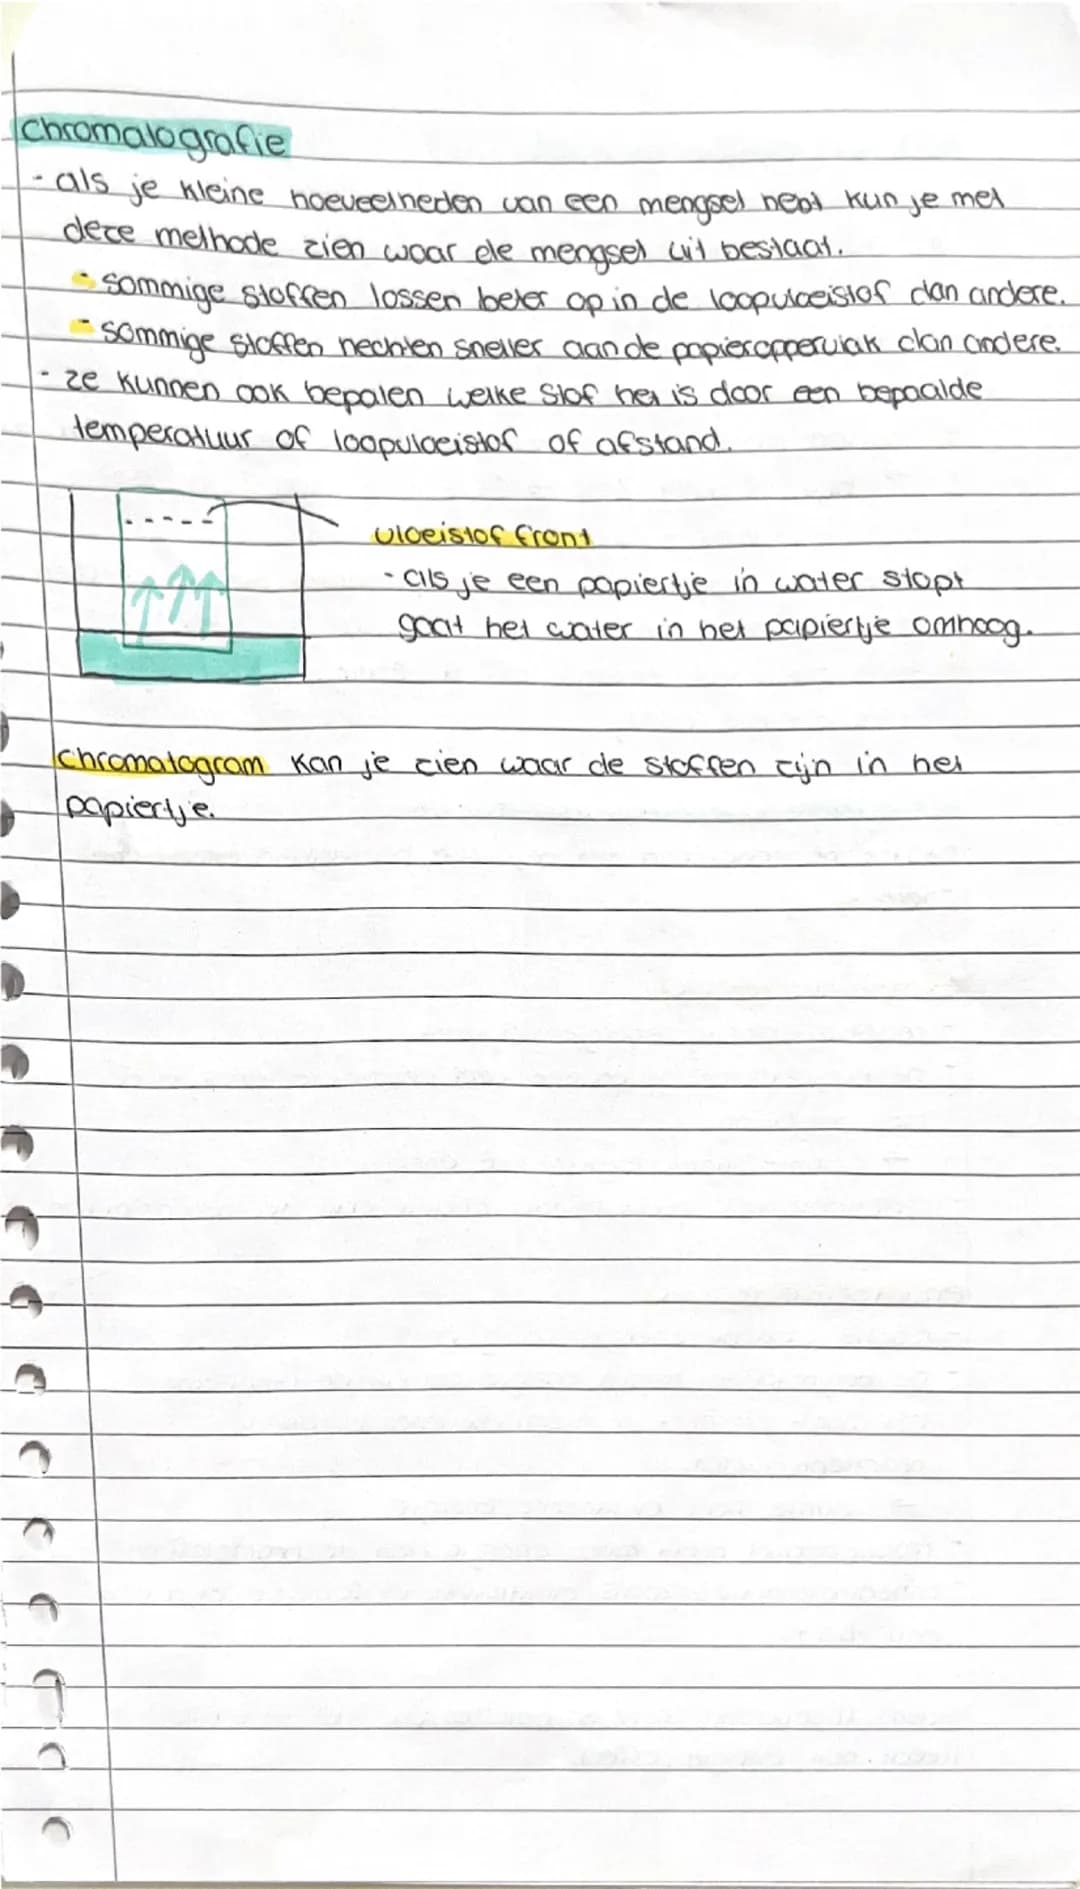 chromatografie
- als je kleine hoeveelheden van een mengsel hebt kun je met
deze methode zien waar de mengsel uit bestaat.
- sommige stoffen lossen beter op in de loopvloeistof dan andere.
- sommige stoffen hechten sneller aan de papieroppervlak dan andere.
- ze kunnen ook bepalen welke stof het is door een bepaalde
temperatuur of loopvloeistof of afstand.
vloeistof front
- als je een papiertje in water stopt
gaat het water in het papiertje omhoog.
chromatogram kan je zien waar de stoffen zijn in het
papiertje.